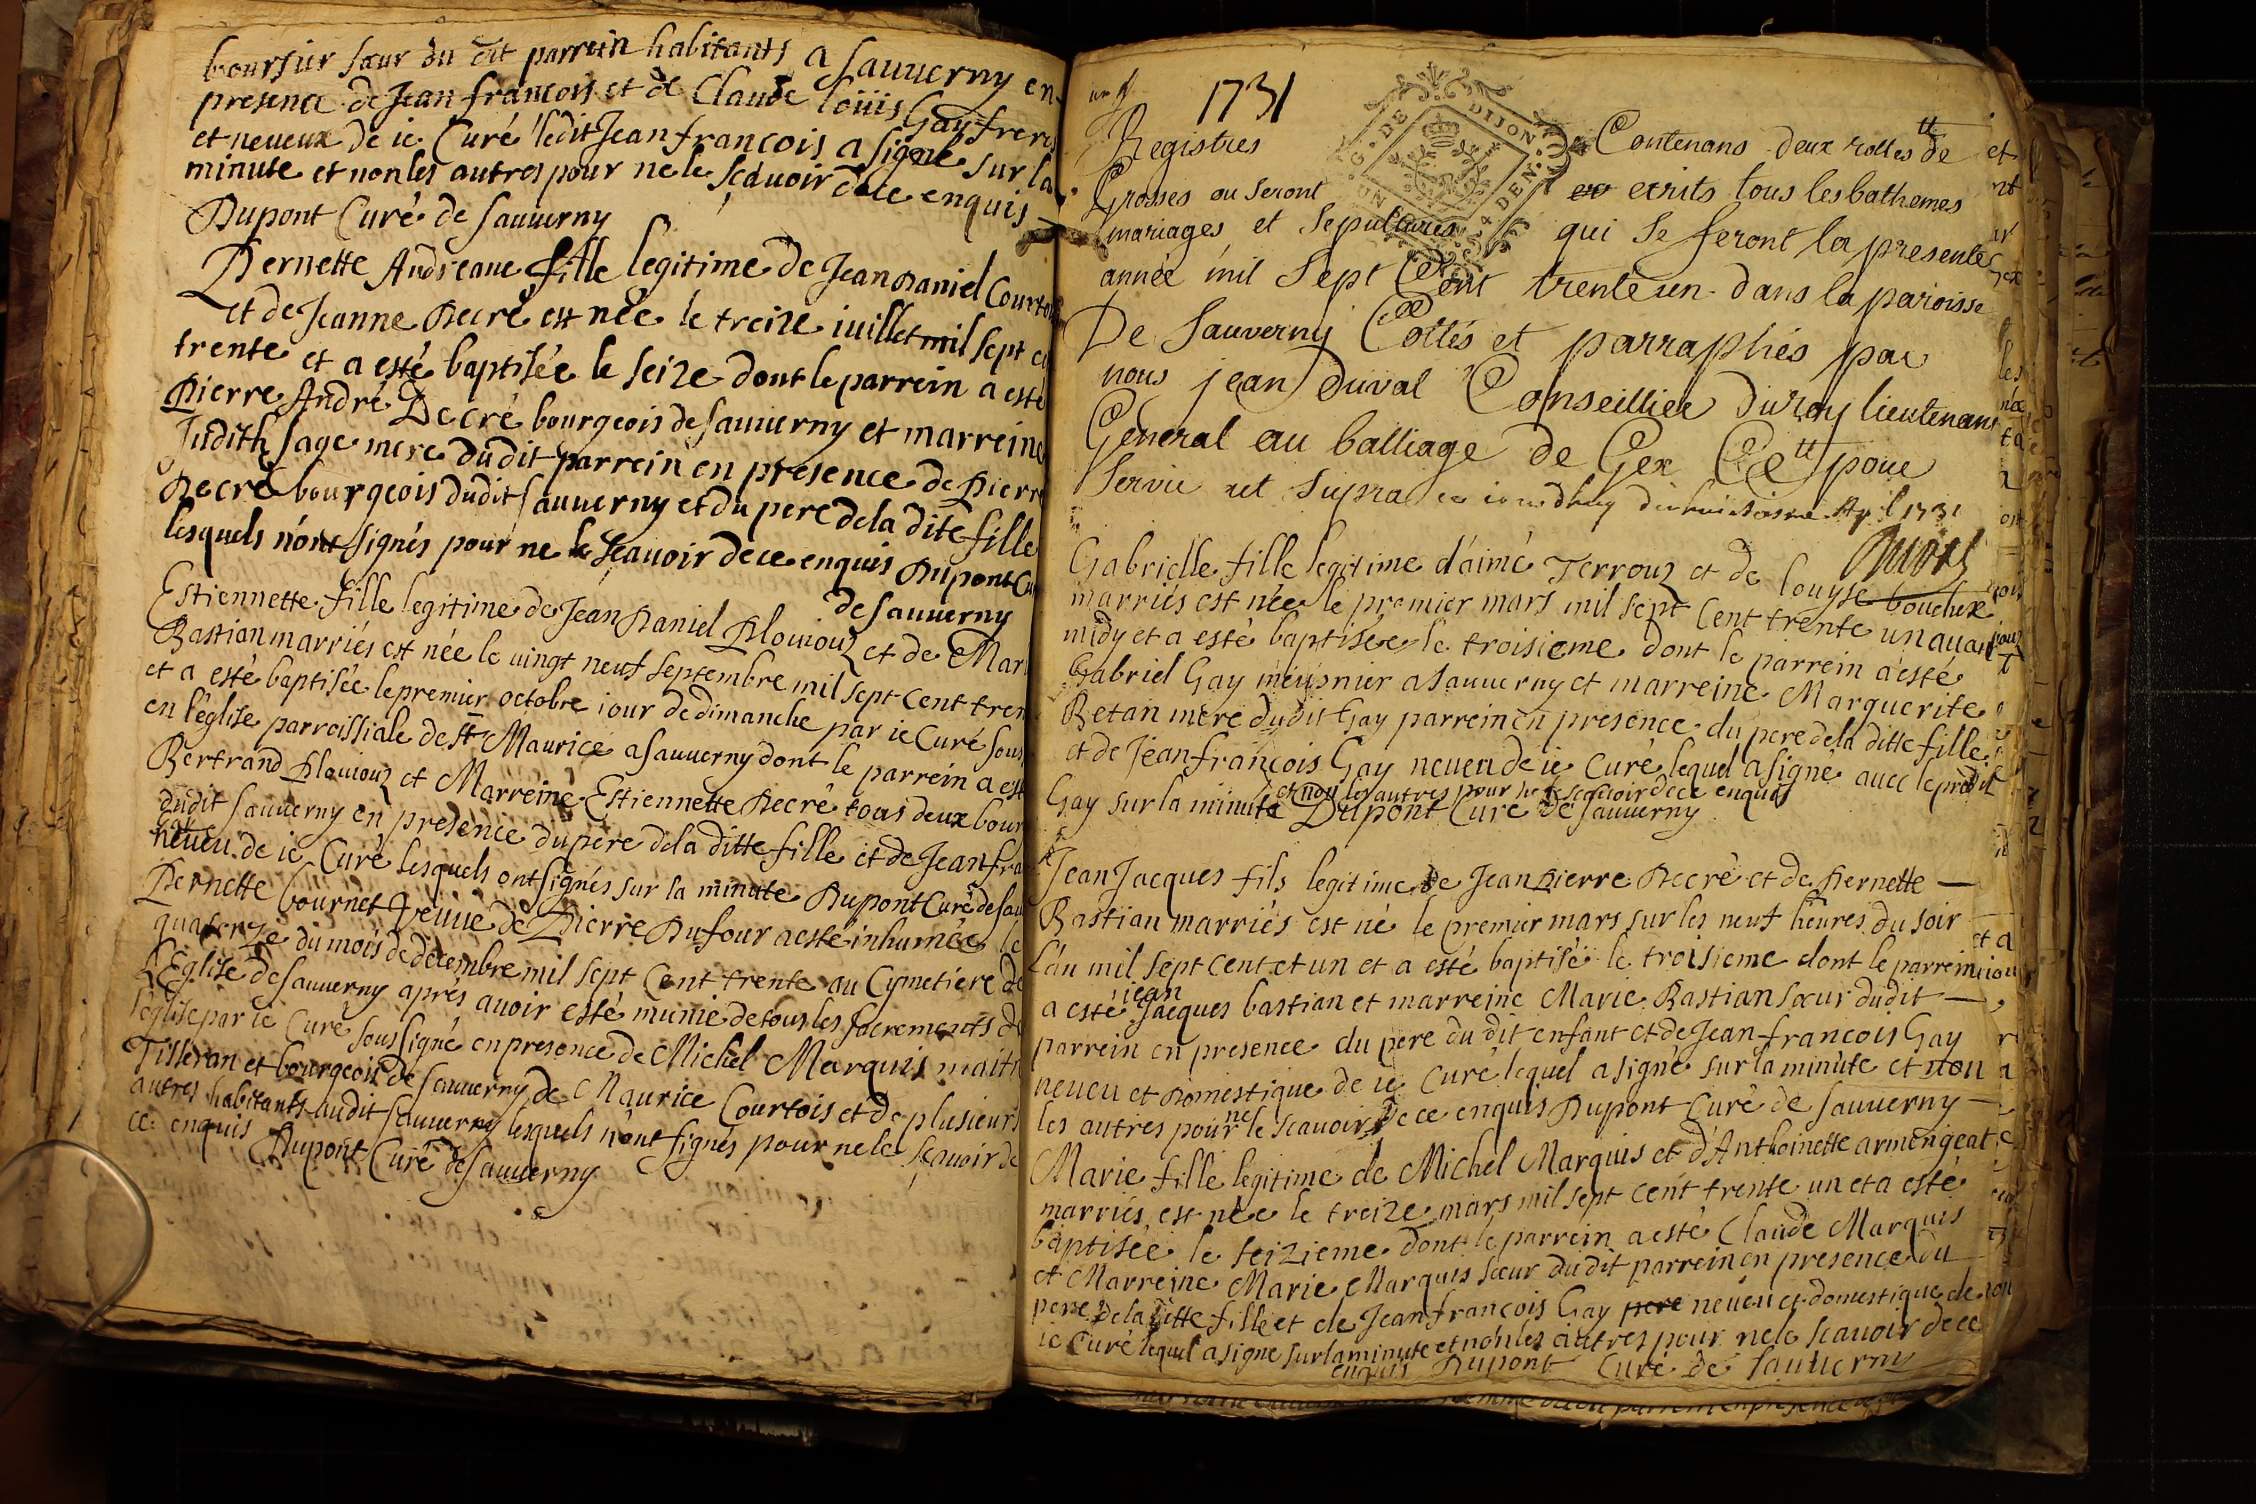 boursier sœur du dit parrein habitants a sauuerny en
presence de Jean francois et de Claude loüis Gay freres
et neueux de ie Curé ledit Jean francois a signé sur la
minute et non les autres pour ne le sçauoir de ce enquis
Dupont Curé de sauuerny
Pernette Andreane fille legitime de Jean Daniel Courtois
et de Jeanne Decré est née le treize iuillet mil sept ce
trente et a esté baptisée le seize dont le parrein a esté
Pierre André Decré bourgeois de sauuerny et marreine
Judith sage mere du dit parrein en presence de Pierre
Decré bourgeois dudit sauuerny et du pere de la dite fille
lesquels n'ont signés pour ne le sçauoir de ce enquis Dupont Cu
de sauuerny
Estiennette fille legitime de Jean Daniel Plouiouz et de Mari
Bastian marriés est née le uingt neuf septembre mil sept cent tren
et a esté baptisée le premier octobre iour de dimanche par ie Curé sous
en l'église parroissiale de St Maurice a sauuerny dont le parrein a est
Bertrand Plouiouz et Marreine Estiennette Decré tous deux bour
dudit sauuerny en presence du pere de la ditte fille et de Jean fra
gay
neueu de ie Curé lesquels ont signés sur la minute Dupont Curé de sau
Pernette bournet Veuue de Pierre Dufour a esté inhumée le
quatorze du mois de decembre mil sept Cent trente au Cymetiere de
l'Eglise de sauuerny aprés auoir esté munie de tous les sacrements de
l'église par ie Curé soussigné en presence de Michel Marquis maitr
Tisseran et bourgeois de sauuerny de Maurice Courtois et de plusieurs
autres habitants audit sauuerny lesquels n'ont signés pour ne le sçauoir de
ce enquis Dupont Curé de sauuerny
1731
G. DE DIJON
UN 4 DEN.
Registres Contenans deux rolles de
Grosses ou seront ecrits tous les bathemes
mariages et sepultures qui se feront la presente
année mil sept Cent trente un dans la paroisse
De Sauverny Cottés et parraphés par
nous jean Duval Conseillier du roy lieutenant
General au balliage de Gex pour
servir ut supra 1731
Duval
Gabrielle fille legitime d'aimé Terrouz et de louyse bouchex
marriés est née le premier mars mil sept Cent trente un auant
midy et a esté baptisée le troisieme dont le parrein a esté
Gabriel Gay meusnier a sauuerny et marreine Marguerite
Betan mere dudit Gay parrein en presence du pere de la ditte fille
et de Jean francois Gay neueu de ie Curé lequel a signé auec le predit
et non les autres pour ne le sçauoir de ce enquis
Gay sur la minute Dupont Curé de sauuerny
Jean Jacques fils legitime de Jean Pierre Decré et de Pernette
Bastian marriés est né le premier mars sur les neuf heures du soir
l'an mil sept cent et un et a esté baptisé le troisieme dont le parrein
jean
a esté Jacques bastian et marreine Marie Bastian sœur dudit
parrein en presence du pere du dit enfant et de Jean francois Gay
neueu et domestique de ie Curé lequel a signé sur la minute et non
les autres pour ne le scauoir de ce enquis Dupont Curé de sauuerny
Marie fille legitime de Michel Marquis et d'Anthoinette armengeat
marriés est née le treize mars mil sept cent trente un et a esté
baptisée le seizieme dont le parrein a esté Claude Marquis
et Marreine Marie Marquis sœur du dit parrein en presence du
pere de la ditte fille et de Jean francois Gay pere neueu et domestique de
ie Curé lequel a signé sur la minute et non les autres pour ne le scauoir de ce
enquis Dupont Curé de sauuerny